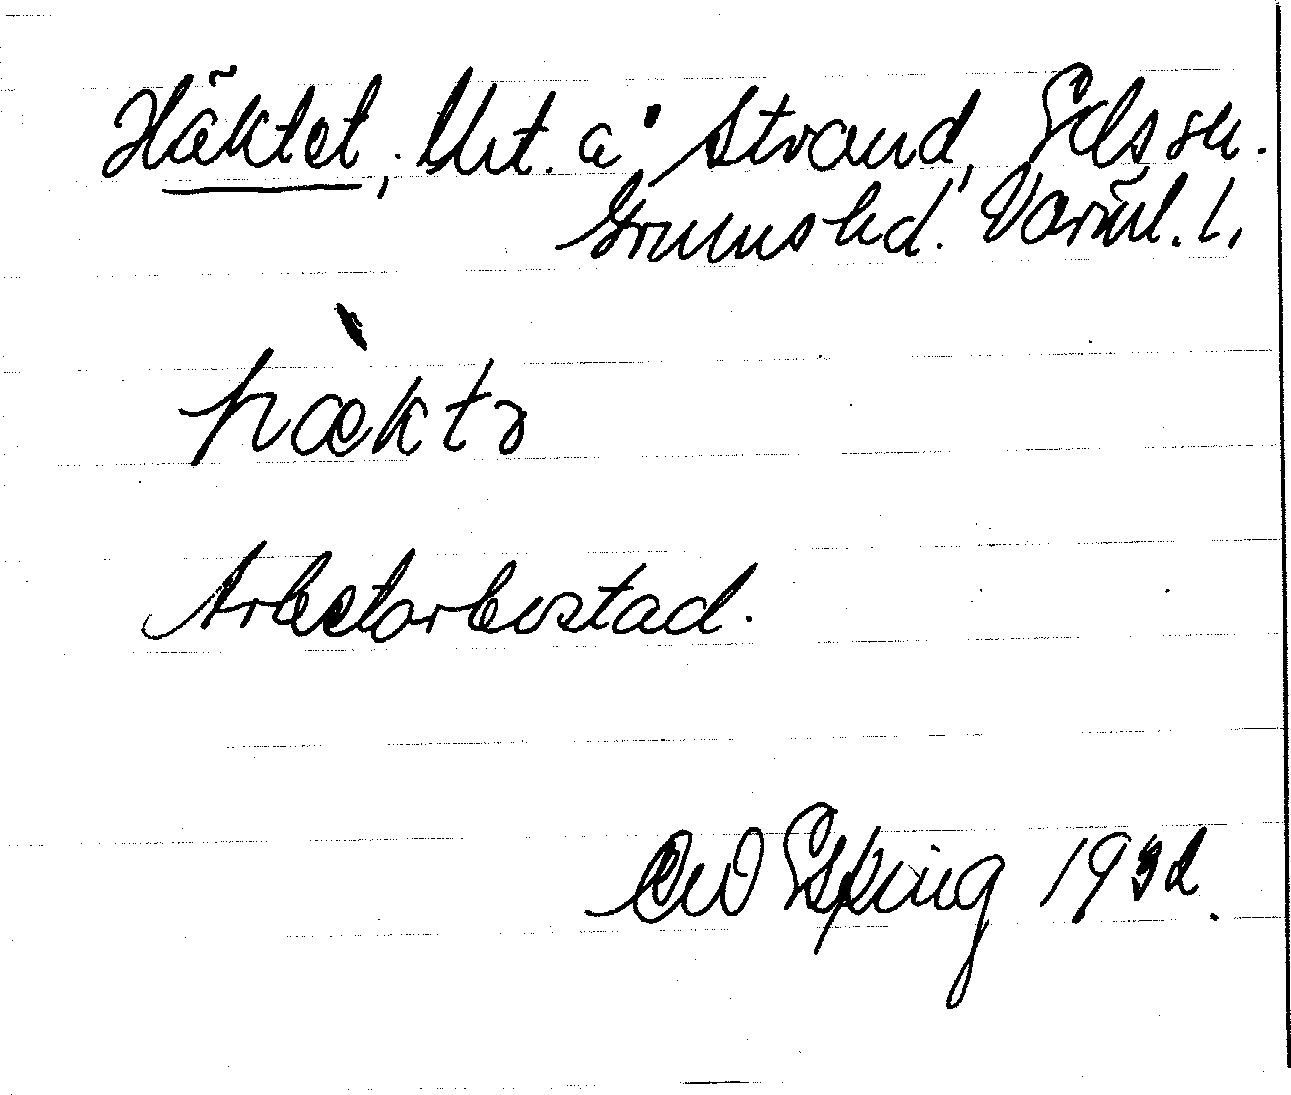 Häktet, Utt. å Strand, Eds sn.
Grums hd. Värml. l.
hæ̀ktə
Arbetarbostad.
Esping 1932.